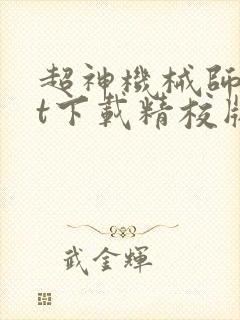 超神機械師
t下載精校版
武金輝